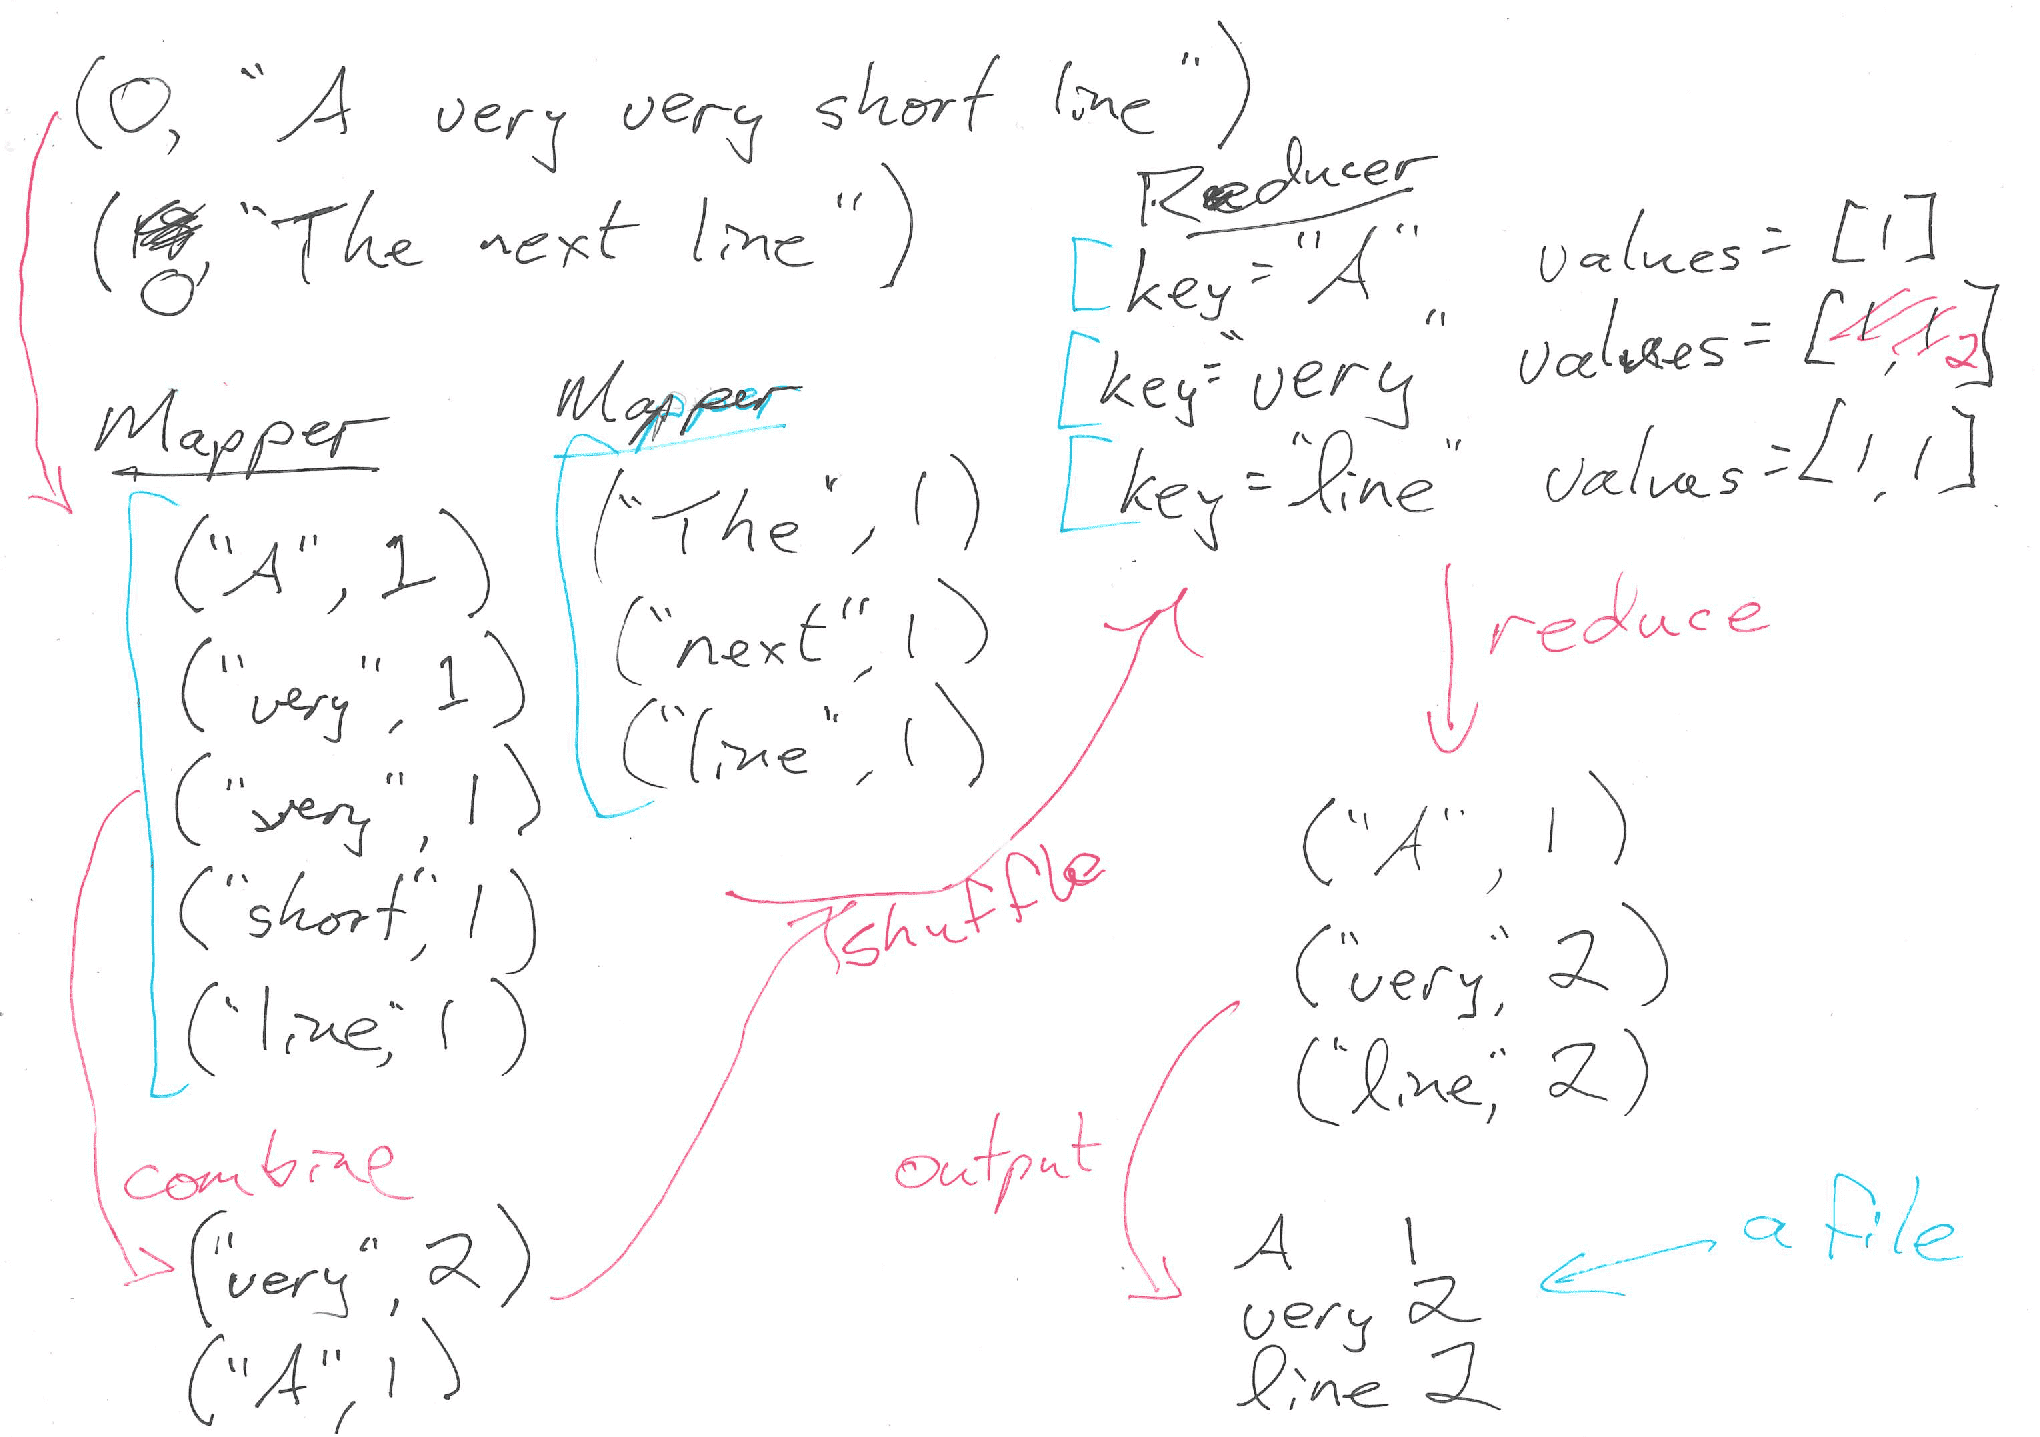 (0, "A very very short line")
(0, "The next line")
Mapper
("A", 1)
("very", 1)
("very", 1)
("short", 1)
("line", 1)
combine
("very", 2)
("A", 1)
Mapper
("The", 1)
("next", 1)
("line", 1)
shuffle
Reducer
key="A" values=[1]
key="very" values=[1,1 2]
key="line" values=[1,1]
reduce
("A", 1)
("very", 2)
("line", 2)
output
A 1
very 2
line 2
a file